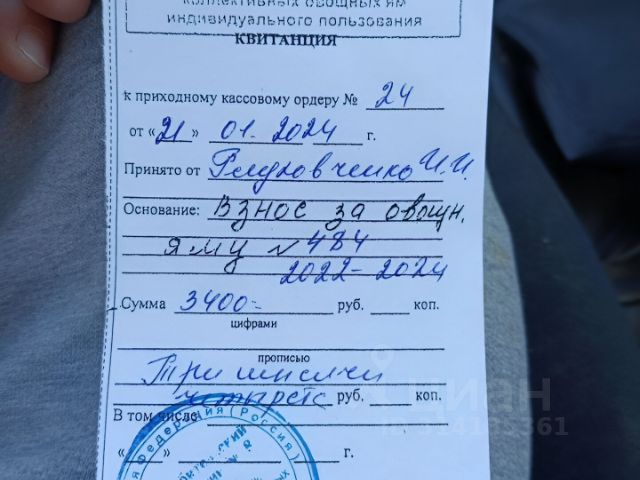 коллективных овощных ям
индивидуального пользования
КВИТАНЦИЯ
к приходному кассовому ордеру № 24
от «21» 01. 2024 г.
Принято от И.И.
Основание: Взнос за овощн.
яму № 484
2022-2024
Сумма 3400= руб. коп.
цифрами
прописью
Три тысячи
четыреста руб. коп.
В том числе
« » г.
Федерация (Россия)
циан